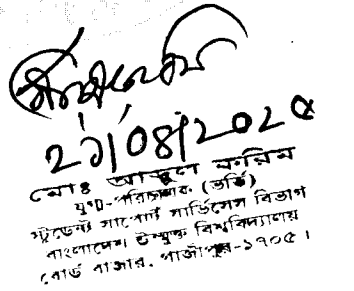 ২১/০৪/২০২৫
মোঃ আব্দুল করিম
যুগ্ম-পরিচালক (ভর্তি)
স্টুডেন্ট সাপোর্ট সার্ভিসেস বিভাগ
বাংলাদেশ উন্মুক্ত বিশ্ববিদ্যালয়
বোর্ড বাজার, গাজীপুর-১৭০৫।